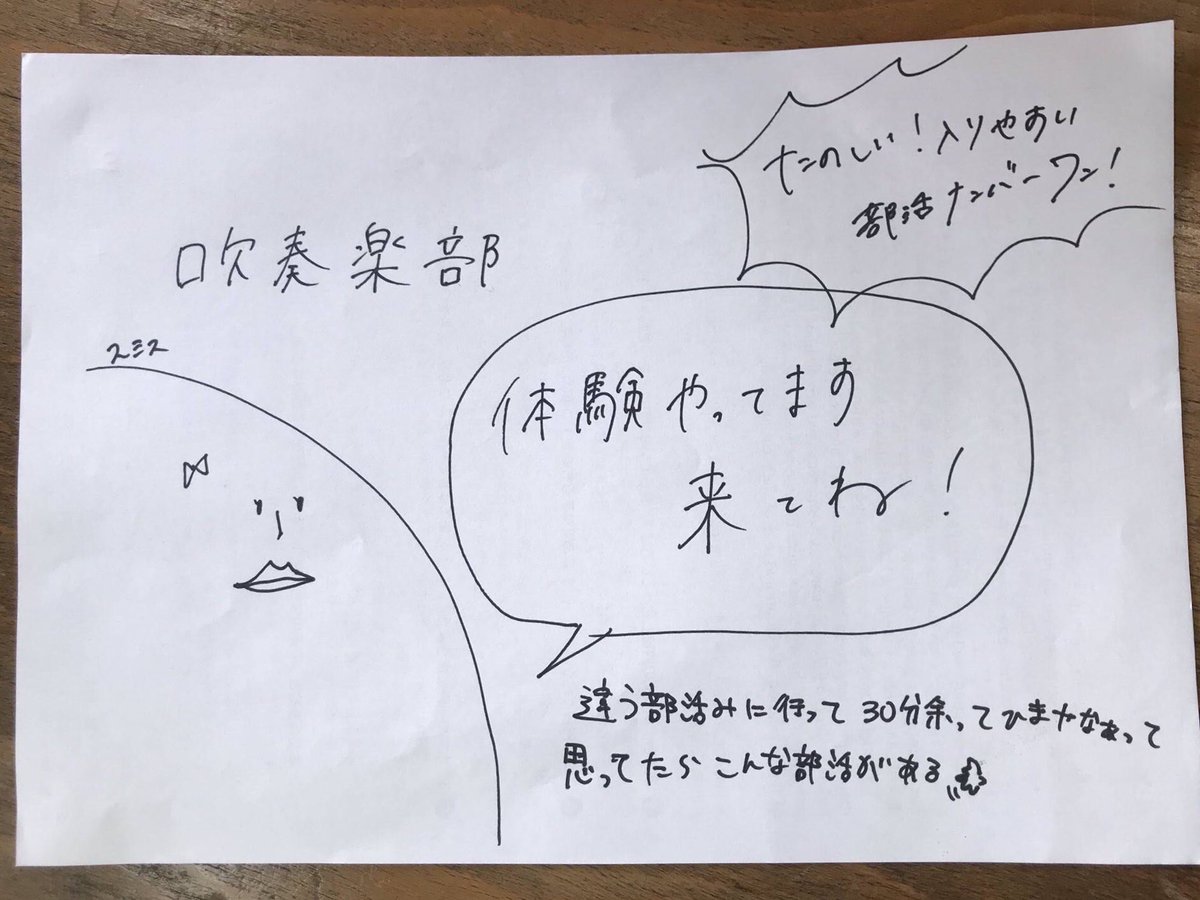 たのしい！入りやすい
部活ナンバーワン！
吹奏楽部
スミス
体験やってます
来てね！
違う部活みに行って30分余ってひまやなぁって
思ってたらこんな部活がある